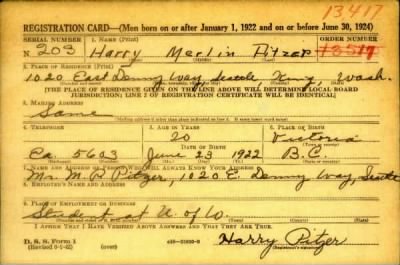 13417
REGISTRATION CARD—(Men born on or after January 1, 1922 and on or before June 30, 1924)
SERIAL NUMBER 1. NAME (Print) ORDER NUMBER
N 203 Harry Merlin Pitzer
(First) (Middle) (Last)
2. PLACE OF RESIDENCE (Print)
1020 East Denny Way, Seattle King, Wash.
[THE PLACE OF RESIDENCE GIVEN ON THE LINE ABOVE WILL DETERMINE LOCAL BOARD
JURISDICTION; LINE 2 OF REGISTRATION CERTIFICATE WILL BE IDENTICAL]
3. MAILING ADDRESS
Same
[Mailing address if other than place indicated on line 2. If same insert word same]
4. TELEPHONE 5. AGE IN YEARS 6. PLACE OF BIRTH
20 Victoria
DATE OF BIRTH
June 23 1922 B.C.
7. NAME AND ADDRESS OF PERSON WHO WILL ALWAYS KNOW YOUR ADDRESS
Pitzer, 1020 E. Denny Way, Seattle
8. EMPLOYER'S NAME AND ADDRESS
9. PLACE OF EMPLOYMENT OR BUSINESS
Student at U. of W.
I AFFIRM THAT I HAVE VERIFIED ABOVE ANSWERS AND THAT THEY ARE TRUE.
D. S. S. Form 1
(over) Harry Pitzer
(Registrant's signature)